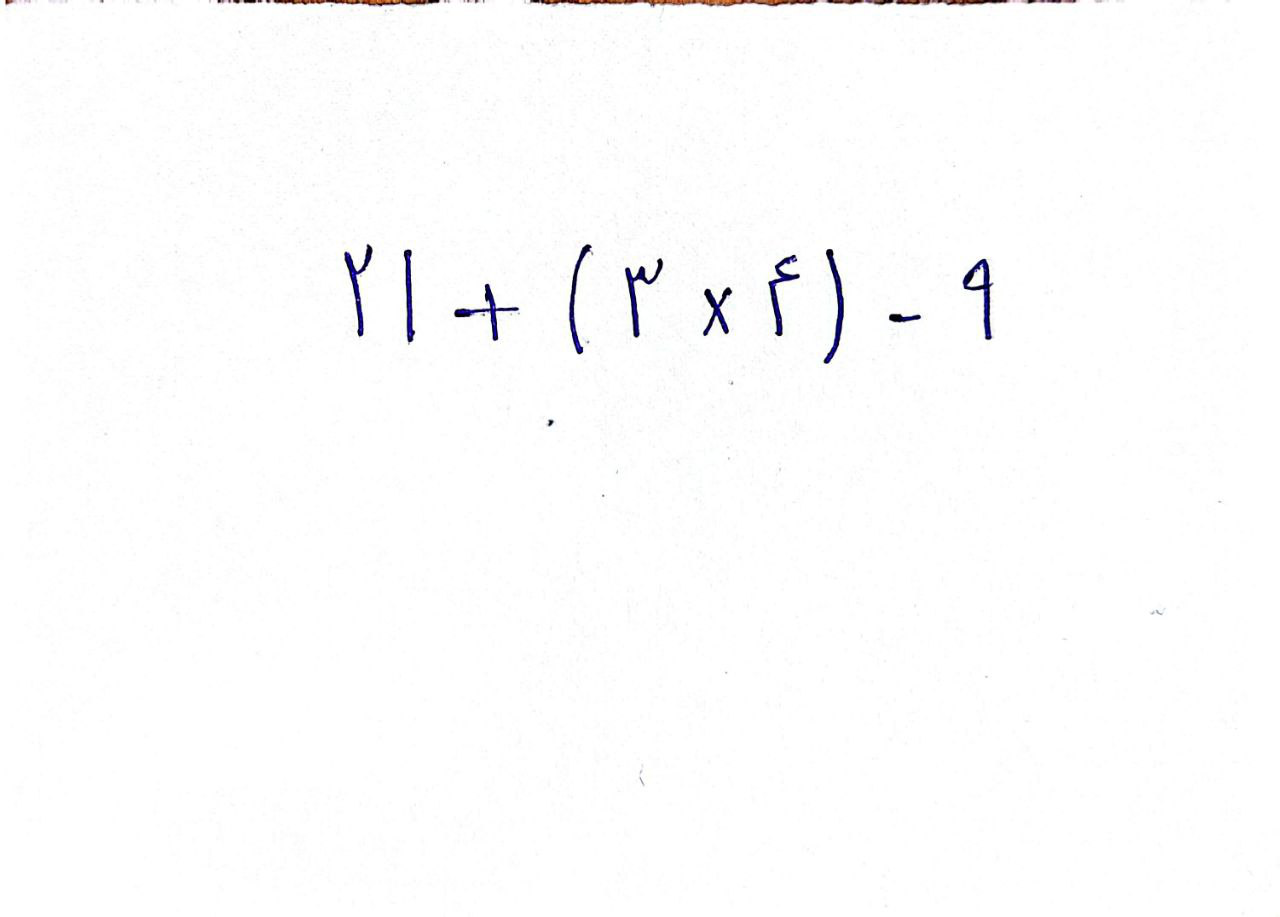 ۲۱ + (۳ × ۴) - ۹